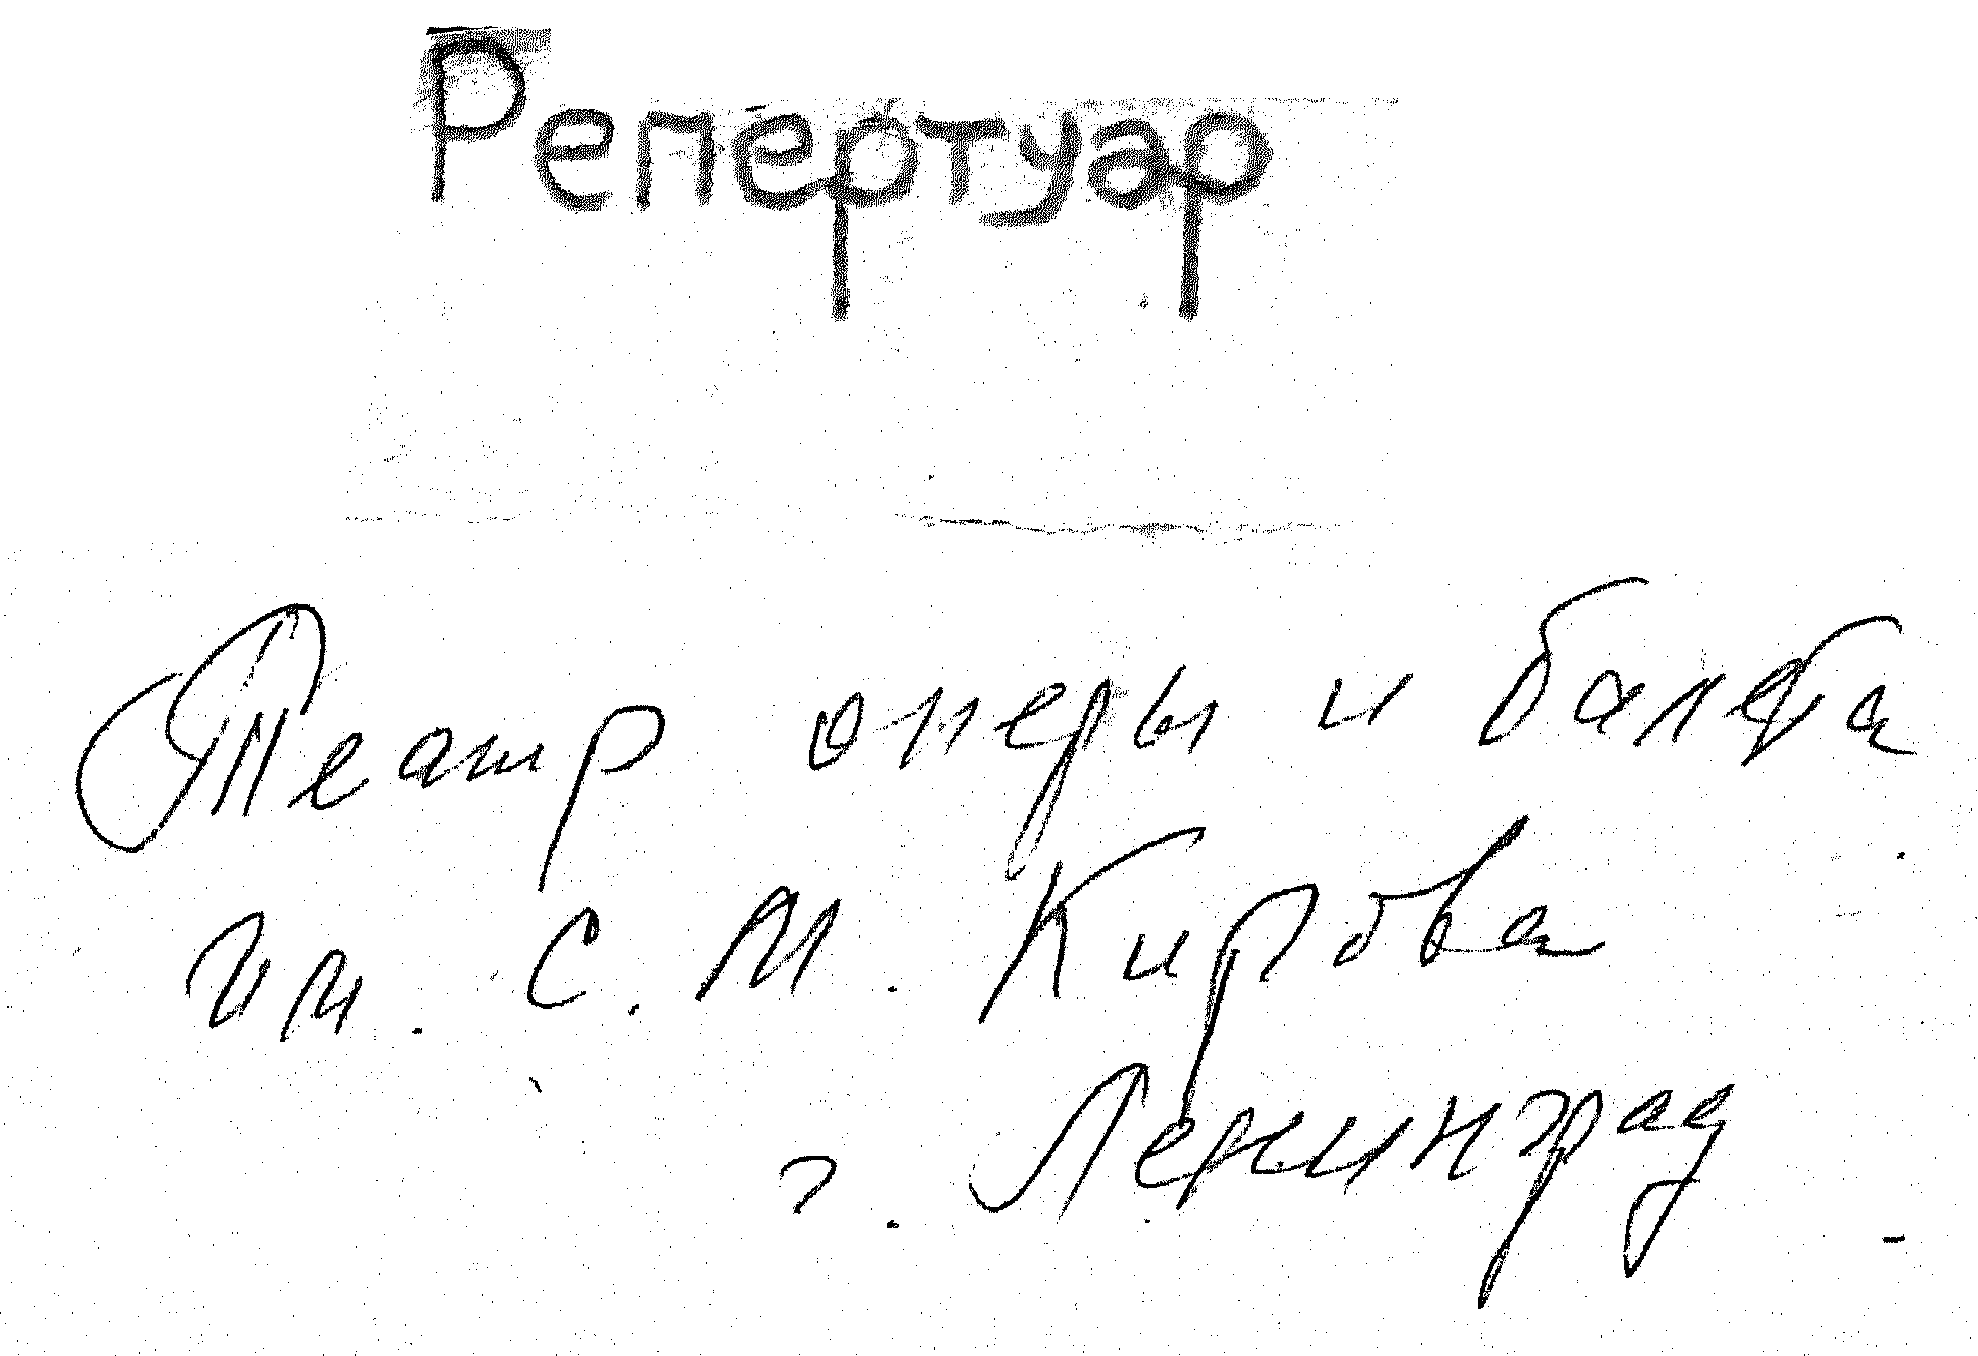 Репертуар
Театр оперы и балета
им. С. М. Кирова
г. Ленинград